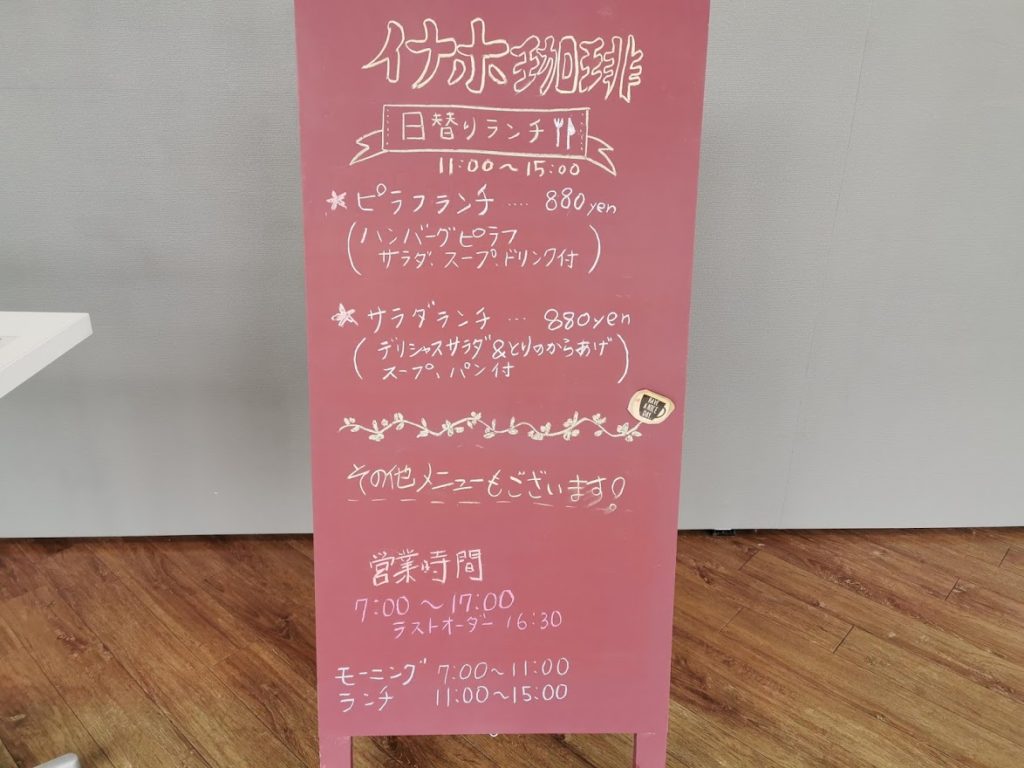 イナホ珈琲
日替りランチ
11:00～15:00
ピラフランチ …. 880yen
(ハンバーグピラフ
サラダ、スープ、ドリンク付)
サラダランチ … 880yen
(デリシャスサラダ&とりのからあげ
スープ、パン付)
HAVE
A NICE
DAY
その他メニューもございます!
営業時間
7:00～17:00
ラストオーダー 16:30
モーニング 7:00～11:00
ランチ 11:00～15:00